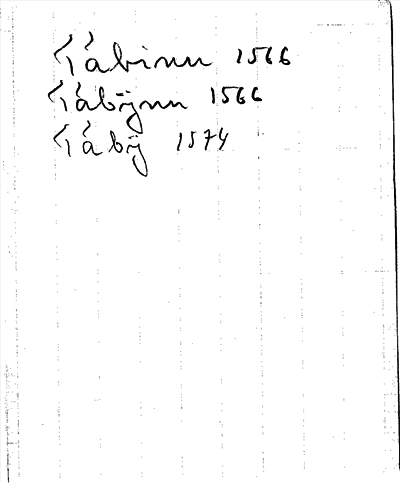 Tábinn 1566
Tábÿnn 1566
Tábÿ 1574